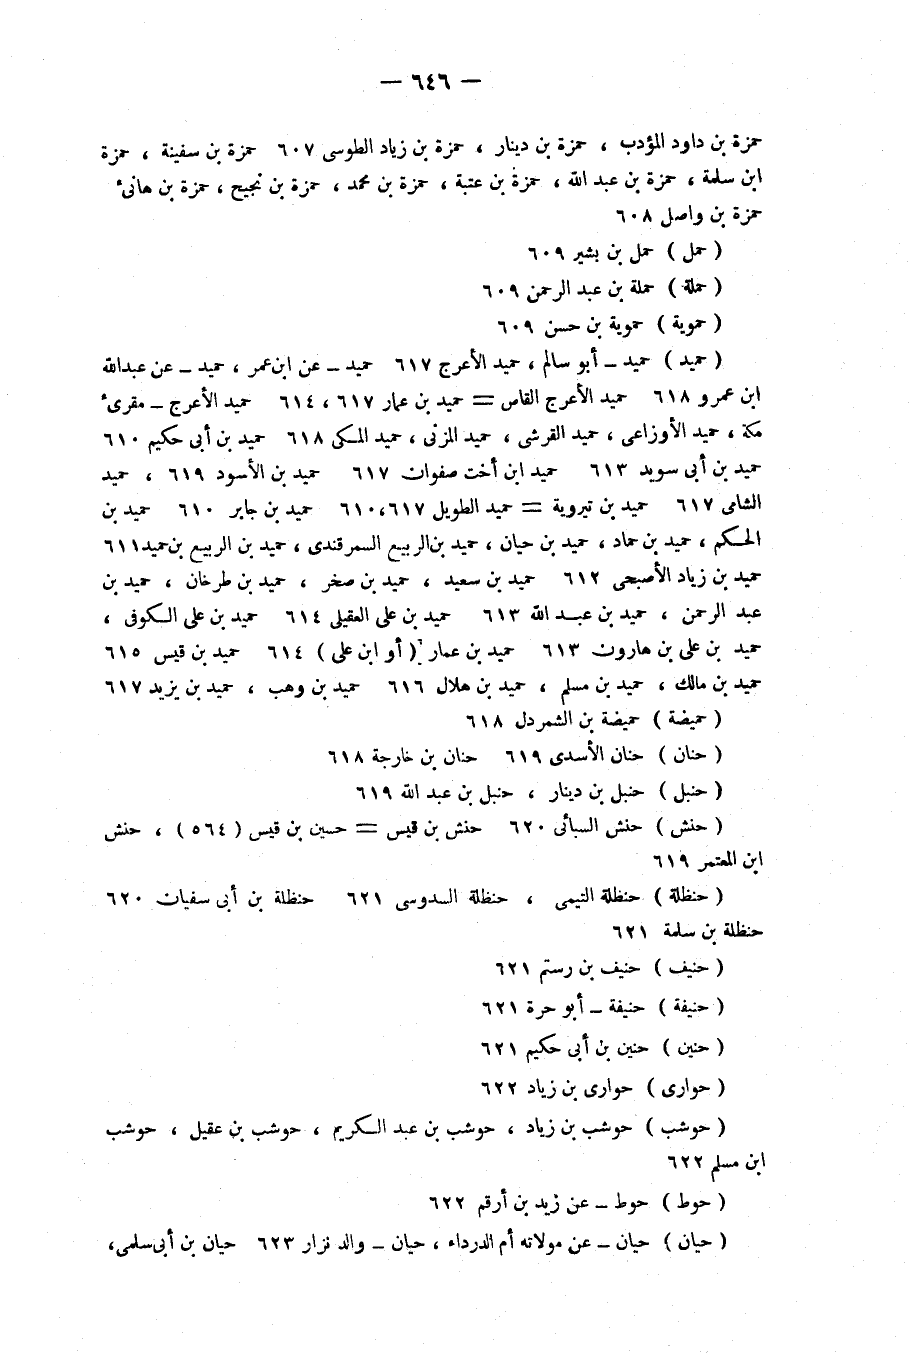 — ٦٤٦ —
حمزة بن داود المؤدب ، حمزة بن دينار ، حمزة بن زياد الطوسى ٦٠٧ حمزة بن سفينة ، حمزة
ابن سلمة ، حمزة بن عبد الله ، حمزة بن عتبة ، حمزة بن محمد ، حمزة بن نجيح ، حمزة بن هانىء
حمزة بن واصل ٦٠٨
( حمل ) حمل بن بشير ٦٠٩
( حملة ) حملة بن عبد الرحمن ٦٠٩
( حموية ) حموية بن حسن ٦٠٩
( حميد ) حميد – أبو سالم ، حميد الأعرج ٦١٧ حميد – عن ابن عمر ، حميد – عن عبدالله
ابن عمرو ٦١٨ حميد الأعرج القاص = حميد بن عمار ٦١٧ ، ٦١٤ حميد الأعرج – مقرىء
مكة ، حميد الأوزاعى ، حميد القرشى ، حميد المزنى ، حميد المكى ٦١٨ حميد بن أبى حكيم ٦١٠
حميد بن أبى سويد ٦١٣ حميد ابن أخت صفوان ٦١٧ حميد بن الأسود ٦١٩ ، حميد
الشامى ٦١٧ حميد بن تيروية = حميد الطويل ٦١٧،٦١٠ حميد بن جابر ٦١٠ حميد بن
الحكم ، حميد بن حماد ، حميد بن حيان ، حميد بن الربيع السمرقندى ، حميد بن الربيع بن حميد ٦١١
حميد بن زياد الأصبحى ٦١٢ حميد بن سعيد ، حميد بن صخر ، حميد بن طرخان ، حميد بن
عبد الرحمن ، حميد بن عبد الله ٦١٣ حميد بن على العقيلى ٦١٤ حميد بن على الكوفى ،
حميد بن على بن هارون ٦١٣ حميد بن عمار ( أو ابن على ) ٦١٤ حميد بن قيس ٦١٥
حميد بن مالك ، حميد بن مسلم ، حميد بن هلال ٦١٦ حميد بن وهب ، حميد بن يزيد ٦١٧
( حميضة ) حميضة بن الشمردل ٦١٨
( حنان ) حنان الأسدى ٦١٩ حنان بن خارجة ٦١٨
( حنبل ) حنبل بن دينار ، حنبل بن عبد الله ٦١٩
( حنش ) حنش السبائى ٦٢٠ حنش بن قيس = حسين بن قيس ( ٥٦٤ ) ، حنش
ابن المعتمر ٦١٩
( حنظلة ) حنظلة التيمى ، حنظلة السدوسى ٦٢١ حنظلة بن أبى سفيان ٦٢٠
حنظلة بن سلمة ٦٢١
( حنيف ) حنيف بن رستم ٦٢١
( حنيفة ) حنيفة – أبو حرة ٦٢١
( حنين ) حنين بن أبى حكيم ٦٢١
( حوارى ) حوارى بن زياد ٦٢٢
( حوشب ) حوشب بن زياد ، حوشب بن عبد الكريم ، حوشب بن عقيل ، حوشب
ابن مسلم ٦٢٢
( حوط ) حوط – عن زيد بن أرقم ٦٢٢
( حيان ) حيان – عن مولاته أم الدرداء ، حيان – والد نزار ٦٢٣ حيان بن أبى سلمى ،